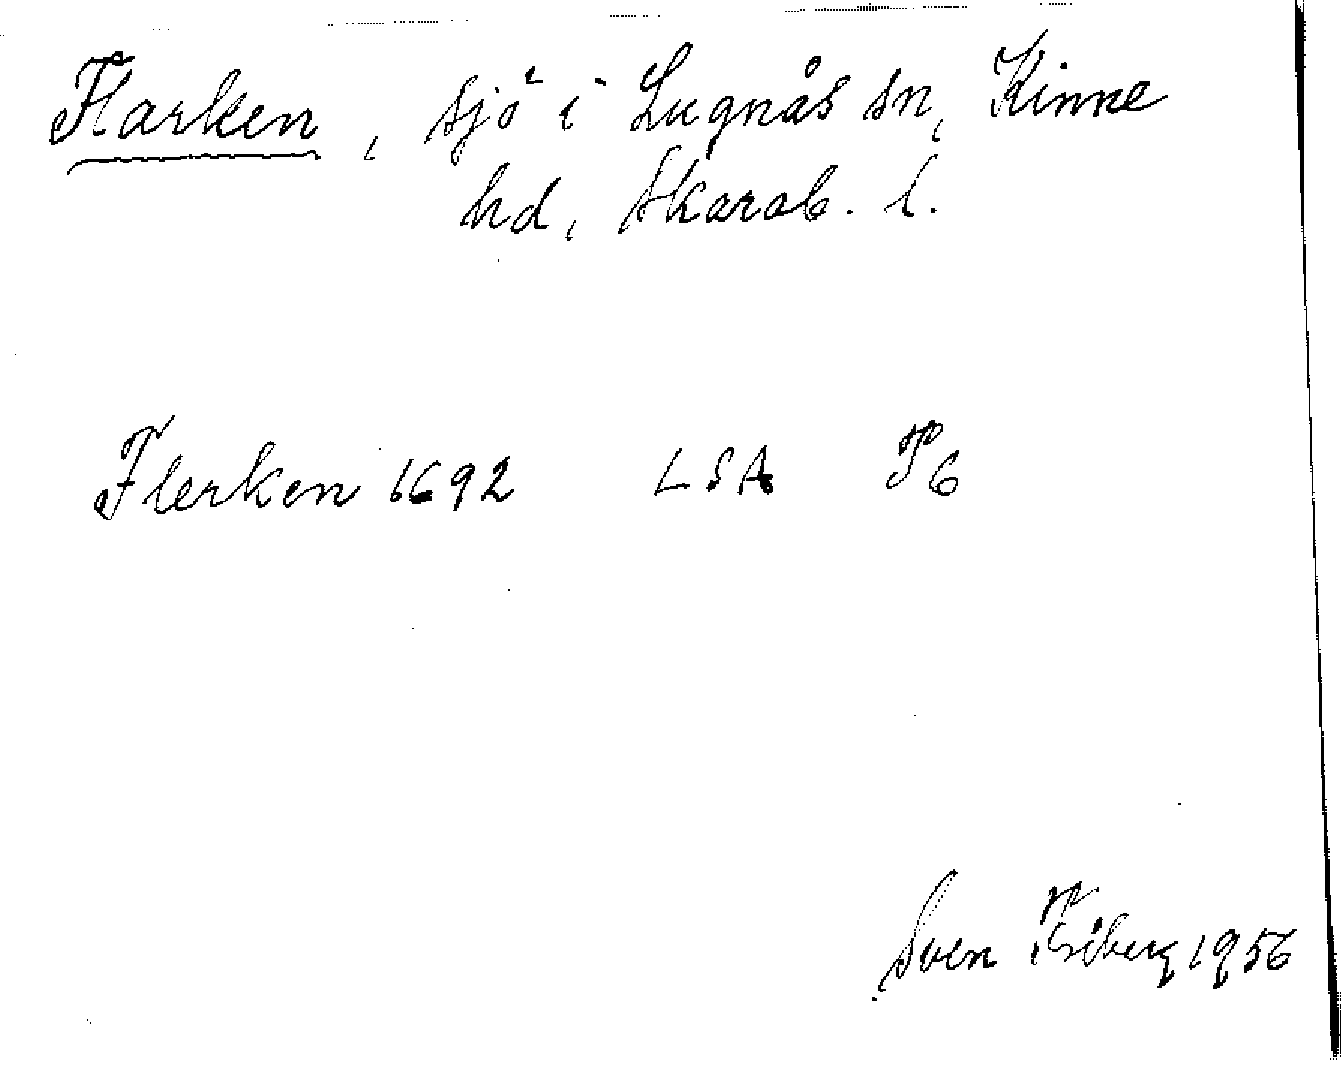 Flarken, sjö i Lugnås sn, Kinne
hd, Skarab. l.
Flerken 1692 LSA P6
Sven Friberg 1956